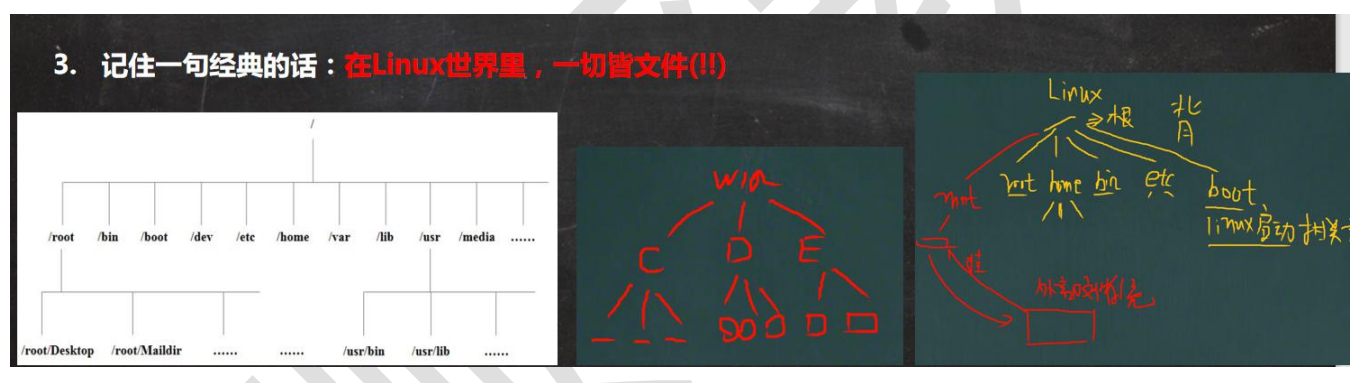 3. 记住一句经典的话：在Linux世界里，一切皆文件(!!)
/
/root /bin /boot /dev /etc /home /var /lib /usr /media ……
/root/Desktop /root/Maildir …… …… /usr/bin /usr/lib ……
win
C D E
Linux
根 背
mnt root home bin etc boot
linux启动相关
挂